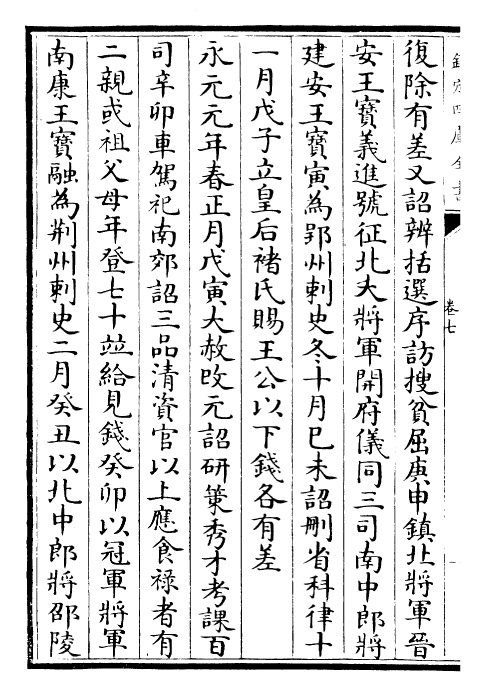 欽定四庫全書
卷七
復除有差又詔辨括選序訪搜貧屈庚申鎮北將軍晉
安王寶義進號征北大將軍開府儀同三司南中郎將
建安王寶寅為郢州刺史冬十月巳未詔刪省科律十
一月戊子立皇后禇氏賜王公以下錢各有差
永元元年春正月戊寅大赦改元詔研策秀才考課百
司辛卯車駕祀南郊詔三品清資官以上應食祿者有
二親或祖父母年登七十並給見錢癸卯以冠軍將軍
南康王寶融為荆州刺史二月癸丑以北中郎將邵陵